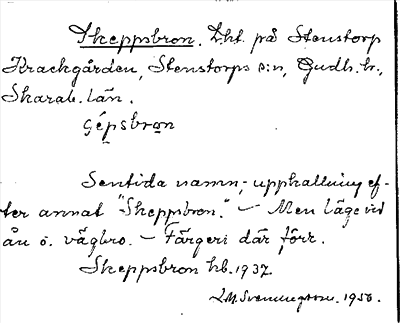 Skeppsbron. Lht. på Stenstorp
Krackgården, Stenstorps s:n, Gudh. h.,
Skarab. län.
Sentida namn, uppkallning ef-
ter annat "Skeppsbron." – Men läge vid
ån o. vägbro. – Färgeri där förr.
Skeppsbron hb. 1937.
1950.